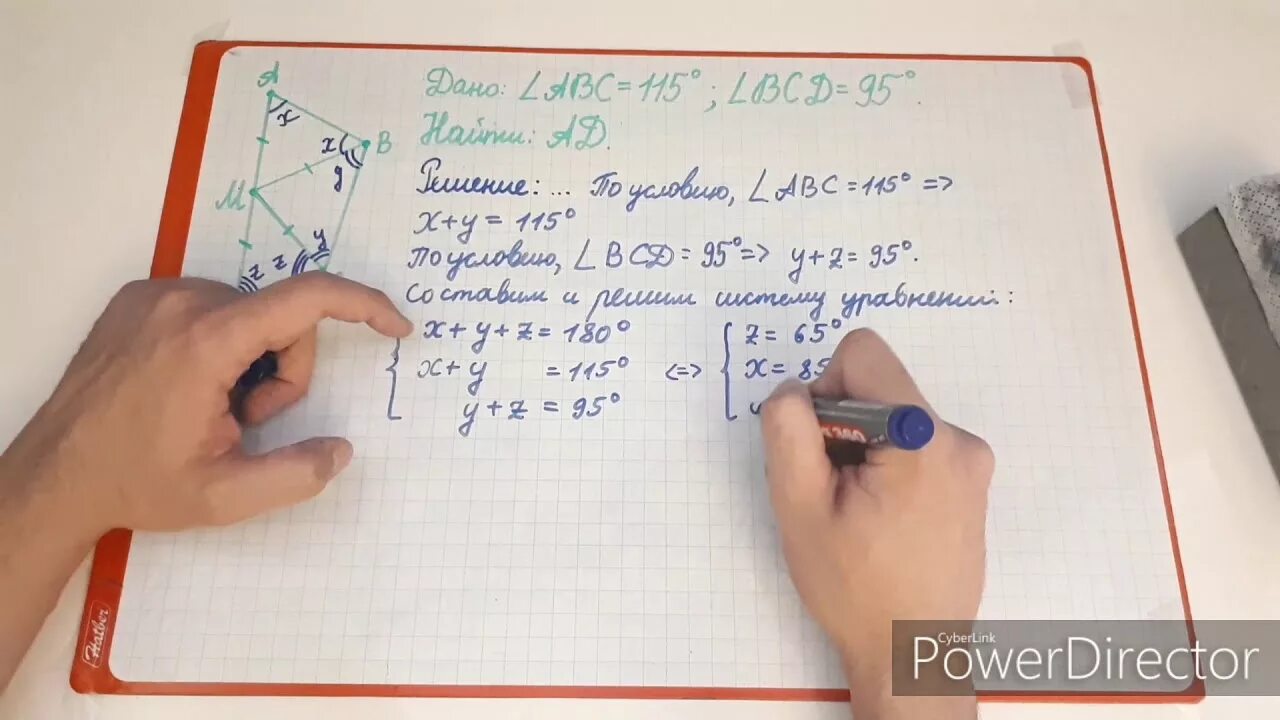 A
x
x
B
y
M
y
z
z
Дано: ∠ABC = 115° ; ∠BCD = 95°.
Найти: AD.
Решение: ... По условию, ∠ABC = 115° =>
x + y = 115°
По условию, ∠BCD = 95° => y + z = 95°.
Составим и решим систему уравнений:
x + y + z = 180°
x + y = 115°
y + z = 95°
<=>
z = 65°
x = 85
Hatber
360
CyberLink
PowerDirector